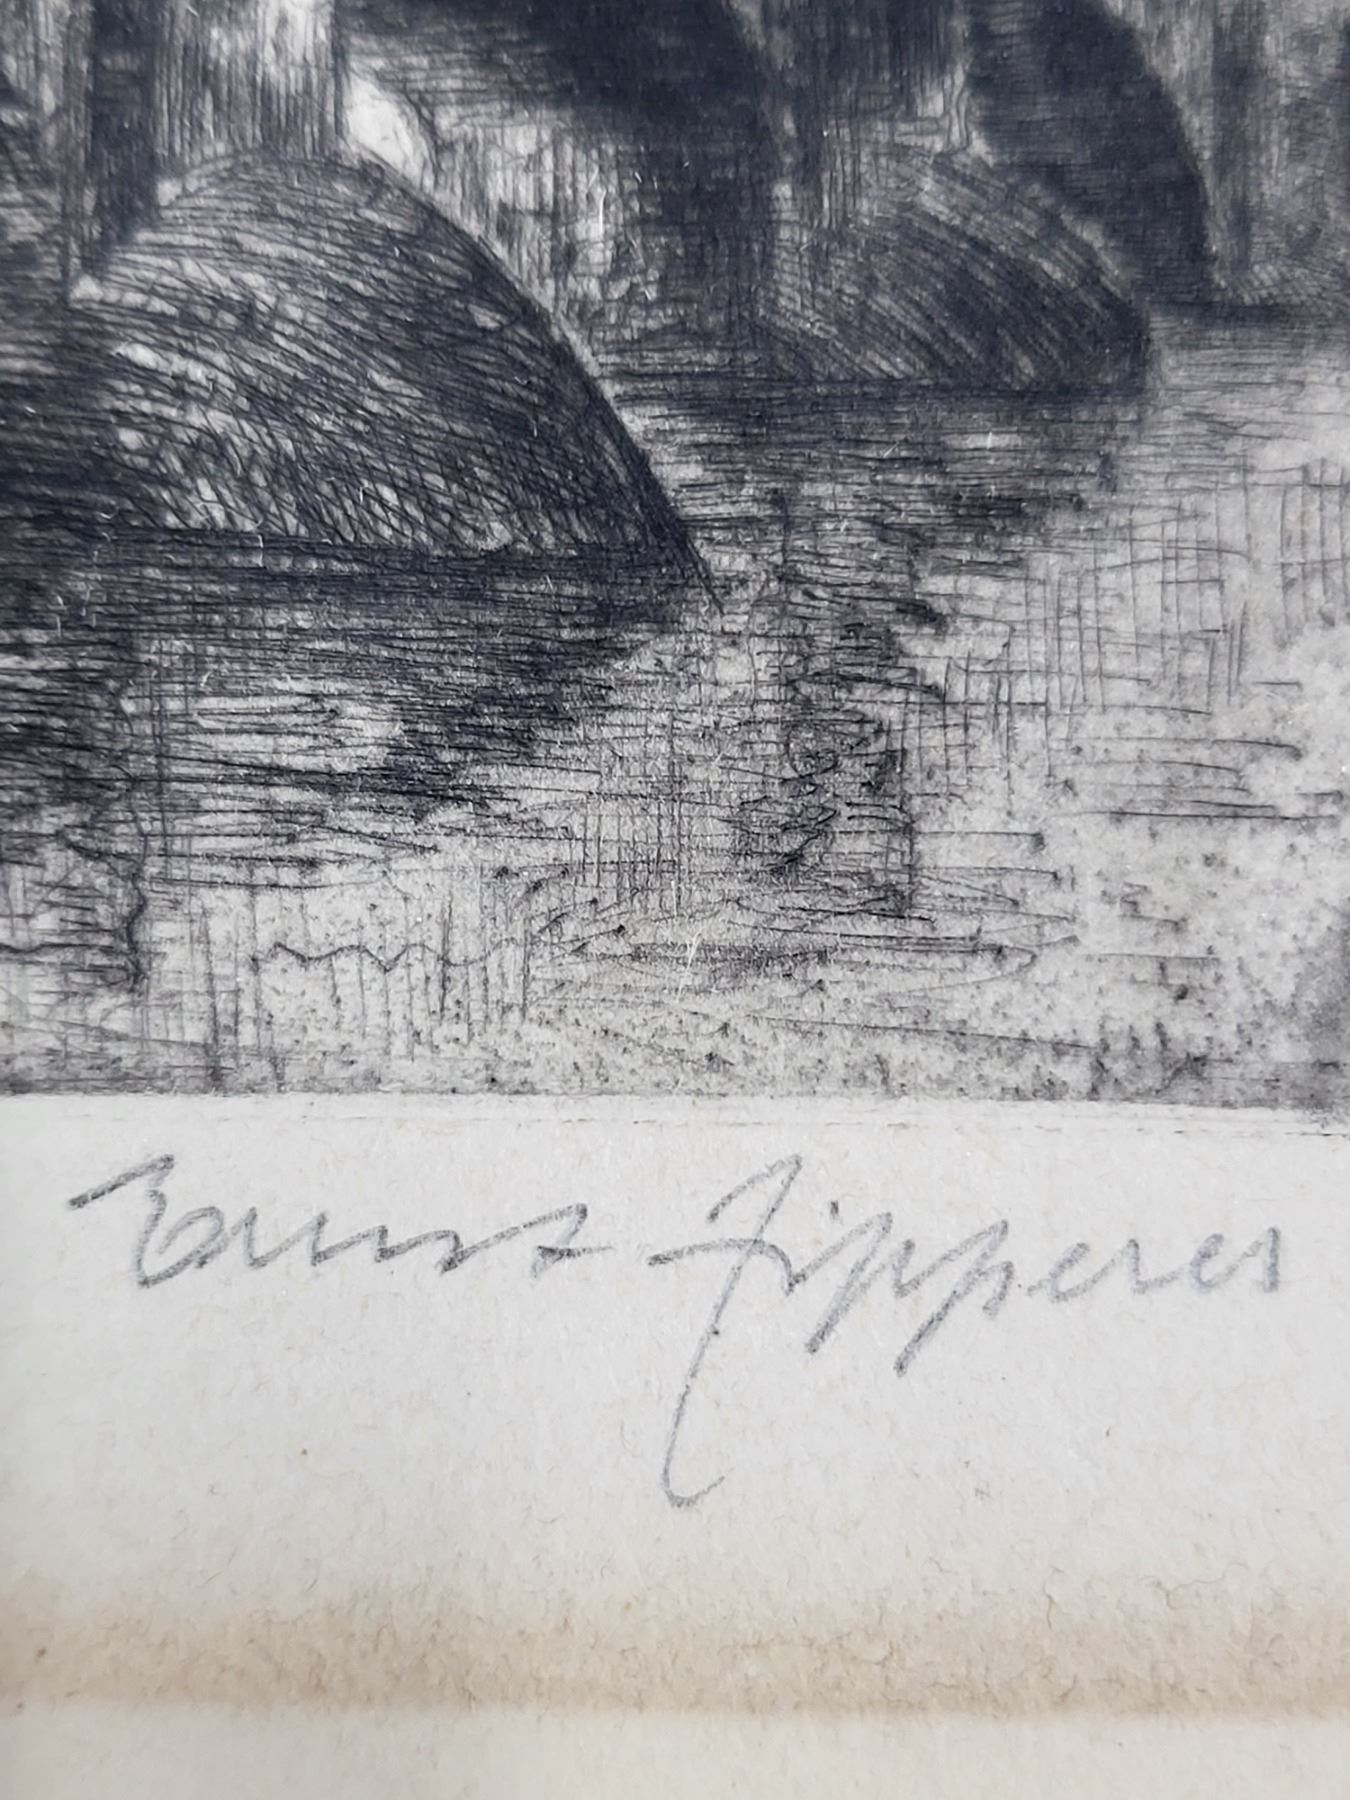 Ernst Zipperer